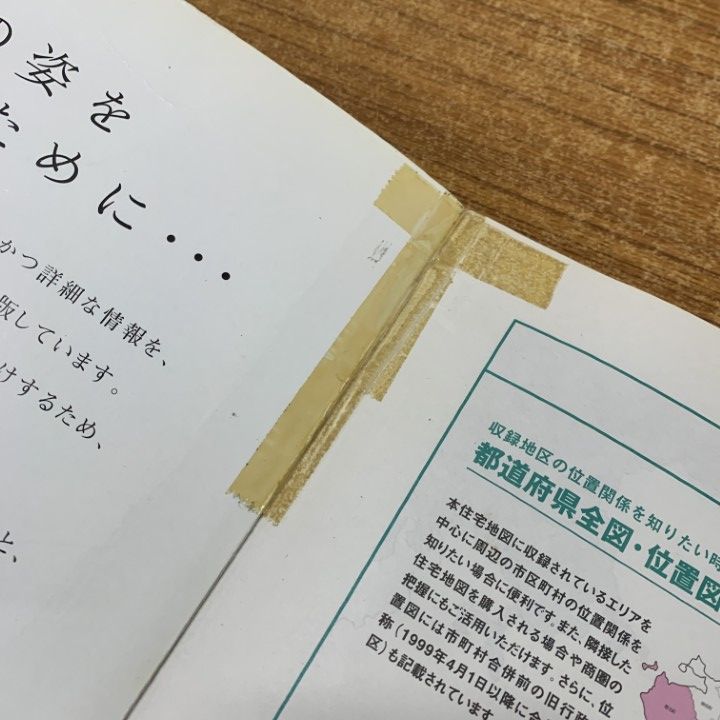 の姿を
ために…
かつ詳細な情報を、
版しています。
けするため、
と、
収録地区の位置関係を知りたい時
都道府県全図・位置図
本住宅地図に収録されているエリアを
中心に周辺の市区町村の位置関係を
知りたい場合に便利です。また、隣接した
住宅地図を購入される場合や商圏の
把握にもご活用いただけます。さらに、位
置図には市町村合併前の旧行政
称(1999年4月1日以降に合
区)も記載されています。